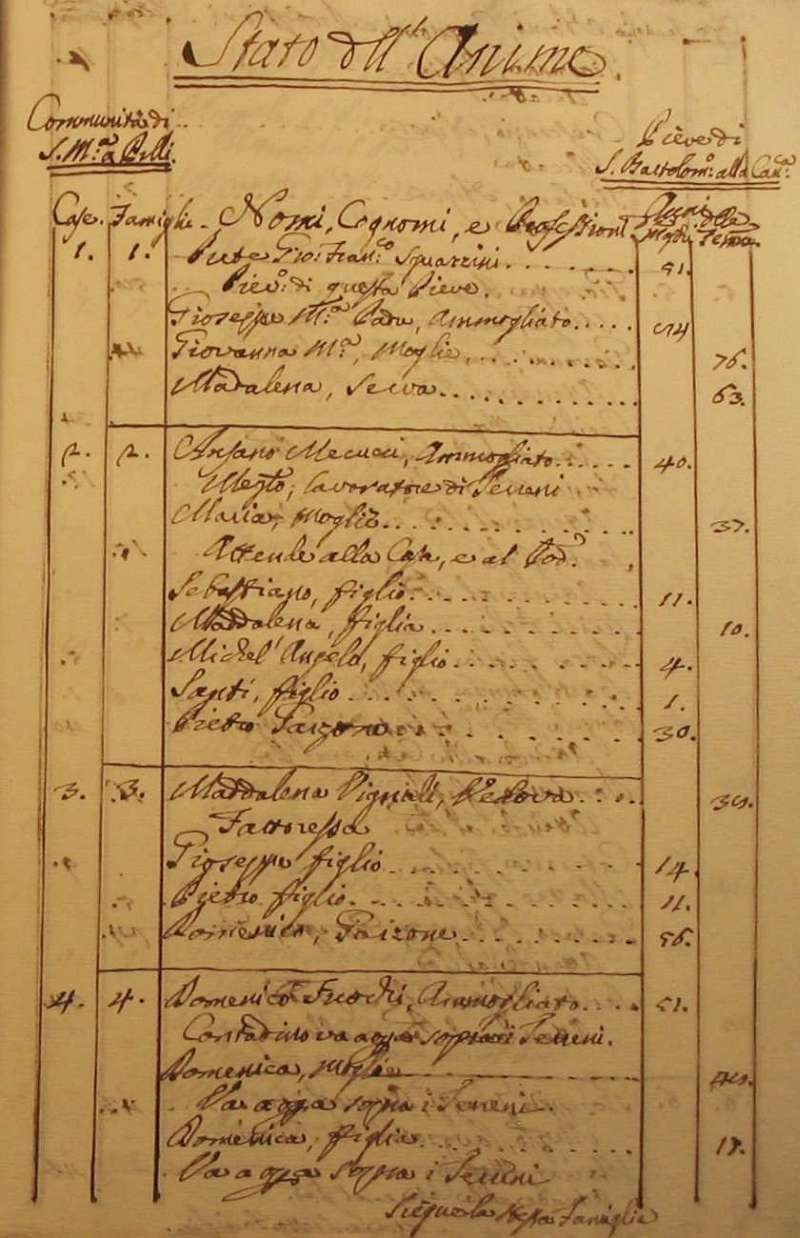 Stato dell' Anime.
Communità di
S. M.ª a Pilli.
Pieve di
S. Bartolom.º alla Can.ca
Case. Famiglie. Nomi, Cognomi, e Professioni Anni delle
Femm.
1. 1. Prete Gio: Fran.co Squarcini 51.
Piev.º di questa Pieve.
Gioseppe M.ª Padre, Ammogliato 74
Giovanna M.ª, Moglie, 76.
Madalena, Serva 63.
2. 2. Ansano Mecucci, Ammogliato 40.
lavoratore di Terreni
Maria, Moglie 37.
Attende alla Casa, e al Pod.e
Sebastiano, figlio 11.
Maddalena, figlia 10.
Michel' Angelo, figlio 4.
Santi, figlio 1.
Pietro Garzone 30.
3. 3. Maddalena Vignali, Vedova
Fattoressa
Gioseppe figlio 14
Pietro figlio 11.
Domenico, Garzone 56.
4. 4. Domenico Ammogliato 51.
Contadino va a opra sopra i Terreni.
Domenica, Moglie
Va a opra sopra i Terreni.
Domenica, figlia 17.
Va a opra sopra i Terreni
Siegue la stessa Famiglia